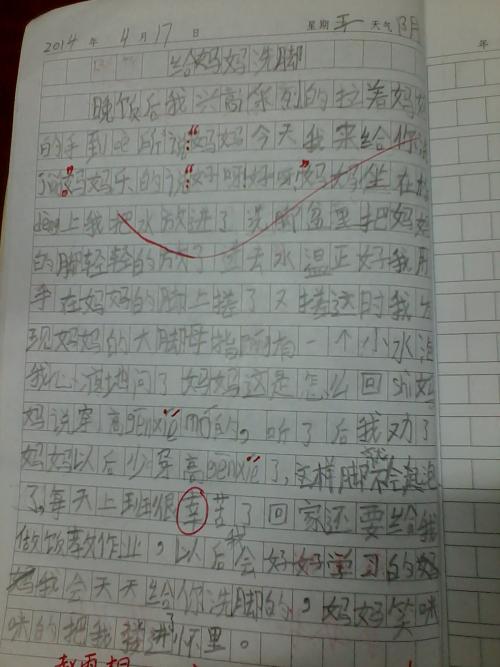 2014 年 4 月 17 日 星期 天气 阴
年
给妈妈洗脚
晚饭后我兴高采烈的拉着妈妈
的手到 所说:“妈妈今天我来给你洗
了 ”妈妈 的说:“好呀!好呀!”妈妈坐在
den上我把水放进了洗脚盆里把妈妈
的脚轻轻的放了进去水温正好我用
手在妈妈的脚上搓了又搓这时我发
现妈妈的大脚母指 有一个小水泡
我 问了妈妈这是怎么回shi妈
妈说穿高genxié 的,听了后我劝了
妈妈以后少穿高genxié了,这样脚就不会起泡
了,每天上班很幸苦了回家还要给我
做饭 作业,以后我会好好学习的妈
妈我会天天给你洗脚的,妈妈笑咪
咪的把我 进了怀里。